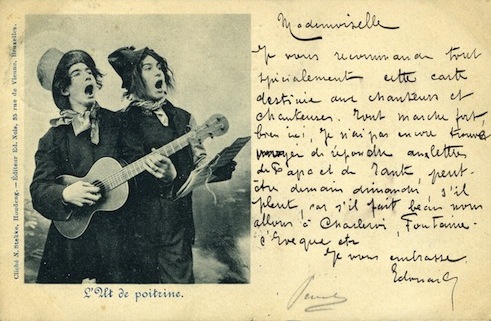 Cliché N. Stekke, Houdeng. — Éditeur Ed. Nels, 35 rue de Vienne, Bruxelles.
L'Ut de poitrine.
Mademoiselle
Je vous recommande tout
spécialement cette carte
destinée aux chanteurs et
chanteuses. Tout marche fort
bien ici, Je n'ai pas encore trouvé
moyen de répondre aux lettres
de Papa et de Tante, peut-
être demain dimanche, s'il
pleut, car s'il fait beau nous
allons à Charleroi, Fontaine-
l'Eveque etc
Je vous embrasse
Edouard